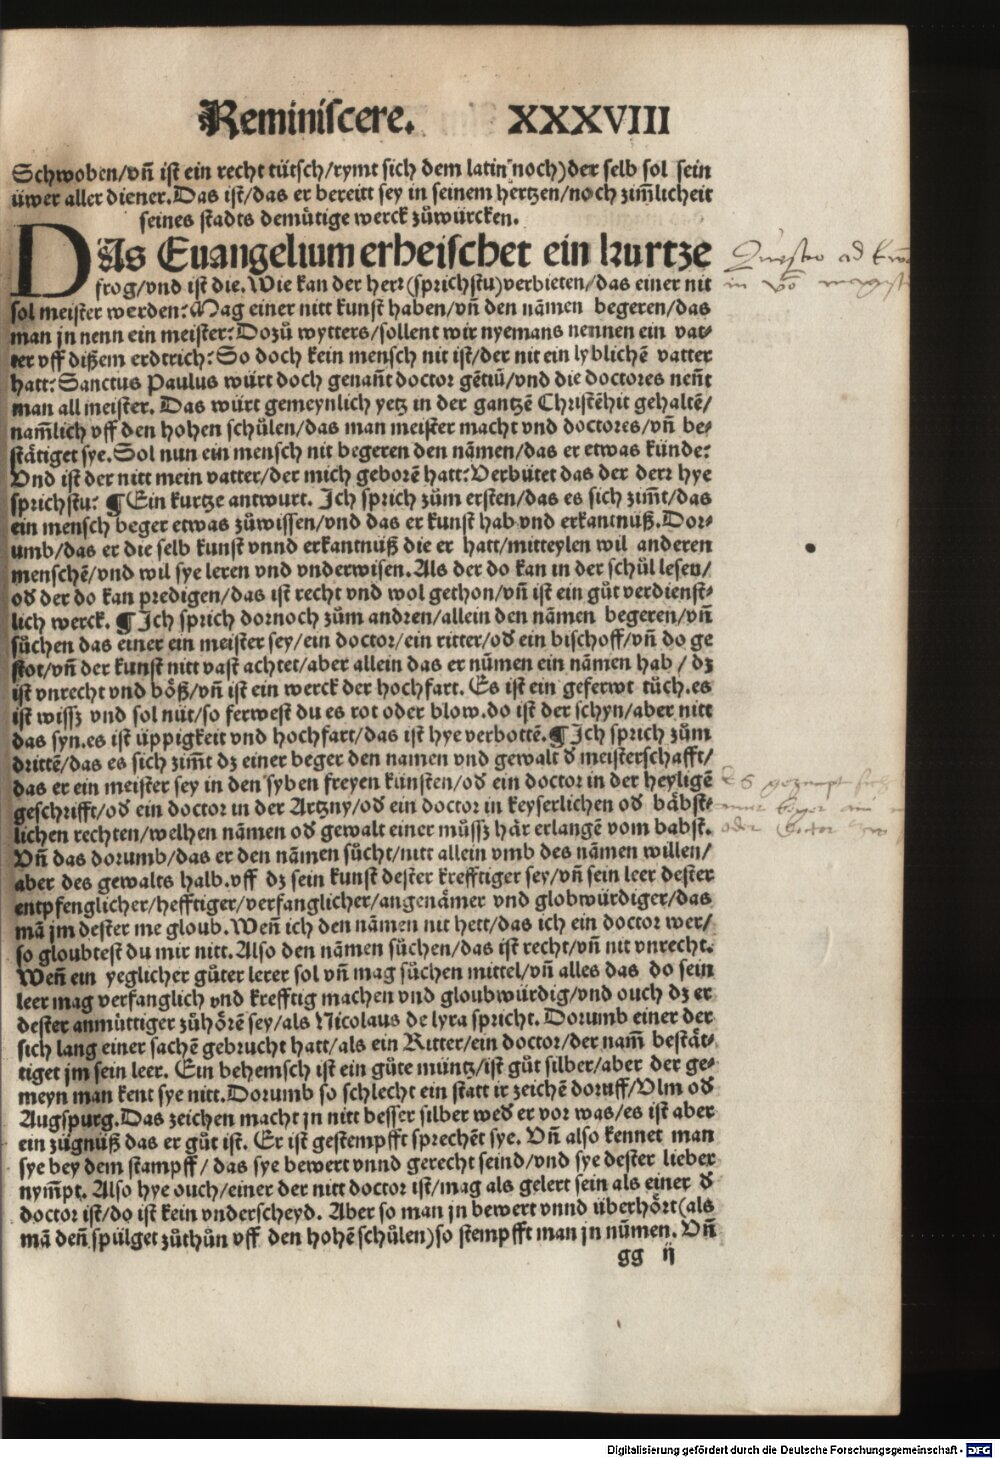 Reminiscere. XXXVIII
Schwoben/vñ ist ein recht tütsch/rymt sich dem latin noch) der selb sol sein
üwer aller diener. Das ist/das er bereitt sey in seinem hertzen/noch zim̃licheit
seines stadts demütige werck zůwürcken.
DAs Euangelium erheischet ein kurtze
frog/vnd ist die. Wie kan der herr (sprichstu) verbieten/das einer nit
sol meister werden: Mag einer nitt kunst haben/vñ den nãmen begeren/das
man jn nenn ein meister: Dozů wytters/sollent wir nyemans nennen ein vat⸗
ter vff dißem erdtrich: So doch kein mensch nit ist/der nit ein lyblichẽ vatter
hatt: Sanctus Paulus würt doch genañt doctor gẽtiũ/vnd die doctores neñt
man all meister. Das würt gemeynlich yetz in der gantzẽ Christẽhit gehaltẽ/
nam̃lich vff den hohen schůlen/das man meister macht vnd doctores/vñ be⸗
stätiget sye. Sol nun ein mensch nit begeren den nãmen/das er etwas künde:
Vnd ist der nitt mein vatter/der mich geborẽ hatt: Verbütet das der herr hye
sprichstu: ¶ Ein kurtze antwurt. Ich sprich zům ersten/das es sich zim̃t/das
ein mensch beger etwas zůwissen/vnd das er kunst hab vnd erkantnüß. Dor⸗
umb/das er die selb kunst vnnd erkantnüß die er hatt/mitteylen wil anderen
menschẽ/vnd wil sye leren vnd vnderwisen. Als der do kan in der schůl lesen/
od̕ der do kan predigen/das ist recht vnd wol gethon/vñ ist ein gůt verdienst⸗
lich werck. ¶ Ich sprich dornoch zům andren/allein den nãmen begeren/vñ
sůchen das einer ein meister sey/ein doctor/ein ritter/od̕ ein bischoff/vñ do ge
stot/vñ der kunst nitt vast achtet/aber allein das er nũmen ein nãmen hab / dz
ist vnrecht vnd böß/vñ ist ein werck der hochfart. Es ist ein geferwt tůch. es
ist wissz vnd sol nüt/so ferwest du es rot oder blow. do ist der schyn/aber nitt
das syn. es ist üppigkeit vnd hochfart/das ist hye verbottẽ. ¶ Ich sprich zům
drittẽ/das es sich zim̃t dz einer beger den namen vnd gewalt d̕ meisterschafft/
das er ein meister sey in den syben freyen künsten/od̕ ein doctor in der heyligẽ
geschrifft/od̕ ein doctor in der Artzny/od̕ ein doctor in keyserlichen od̕ bäbst⸗
lichen rechten/welhen nãmen od̕ gewalt einer můssz här erlangẽ vom babst.
Vñ das dorumb/das er den nãmen sůcht/nitt allein vmb des nãmen willen/
aber des gewalts halb. vff dz sein kunst dester krefftiger sey/vñ sein leer dester
entpfenglicher/hefftiger/verfanglicher/angenämer vnd globwürdiger/das
mã jm dester me gloub. Weñ ich den nãmen nit hett/das ich ein doctor wer/
so gloubtest du mir nitt. Also den nãmen sůchen/das ist recht/vñ nit vnrecht.
Weñ ein yeglicher gůter lerer sol vñ mag sůchen mittel/vñ alles das do sein
leer mag verfanglich vnd krefftig machen vnd gloubwürdig/vnd ouch dz er
dester anmüttiger zůhörẽ sey/als Nicolaus de lyra spricht. Dorumb einer der
sich lang einer sachẽ gebrucht hatt/als ein Ritter/ein doctor/der nam̃ bestät⸗
tiget jm sein leer. Ein behemsch ist ein gůte müntz/ist gůt silber/aber der ge⸗
meyn man kent sye nitt. Dorumb so schlecht ein statt ir zeichẽ doruff/Vlm od̕
Augspurg. Das zeichen macht jn nitt besser silber wed̕ er vor was/es ist aber
ein zügnüß das er gůt ist. Er ist gestempfft sprechẽt sye. Vñ also kennet man
sye bey dem stampff / das sye bewert vnnd gerecht seind/vnd sye dester lieber
nym̃pt. Also hye ouch/einer der nitt doctor ist/mag als gelert sein als einer d̕
doctor ist/do ist kein vnderscheyd. Aber so man jn bewert vnnd überhört (als
mã deñ spülget zůthůn vff den hohẽ schůlen) so stempfft man jn nũmen. Vñ
gg ij
Questio ad
in magist
Digitalisierung gefördert durch die Deutsche Forschungsgemeinschaft - DFG